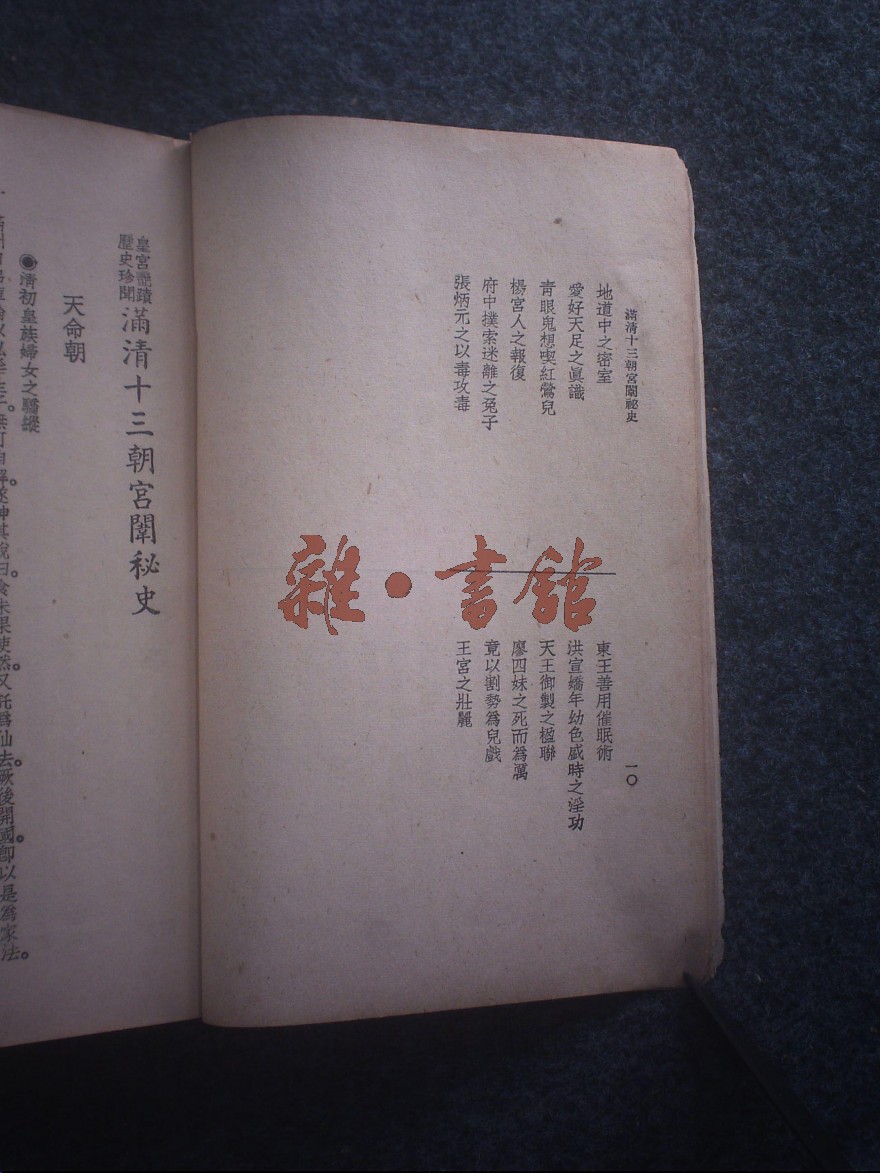 滿清十三朝宮闈祕史
一〇
地道中之密室
愛好天足之眞識
靑眼鬼想喫紅鶯兒
楊宮人之報復
府中撲索迷離之兔子
張炳元之以毒攻毒
東王善用催眠術
洪宣嬌年幼色盛時之淫功
天王御製之楹聯
廖四妹之死而爲厲
竟以割勢爲兒戲
王宮之壯麗
雜•書館
皇宮艷蹟
歷史珍聞
滿清十三朝宮闈秘史
天命朝
◉淸初皇族婦女之驕縱
遂神其說曰。食朱果使然。又託爲仙去。厥後開國。卽以是爲家法。